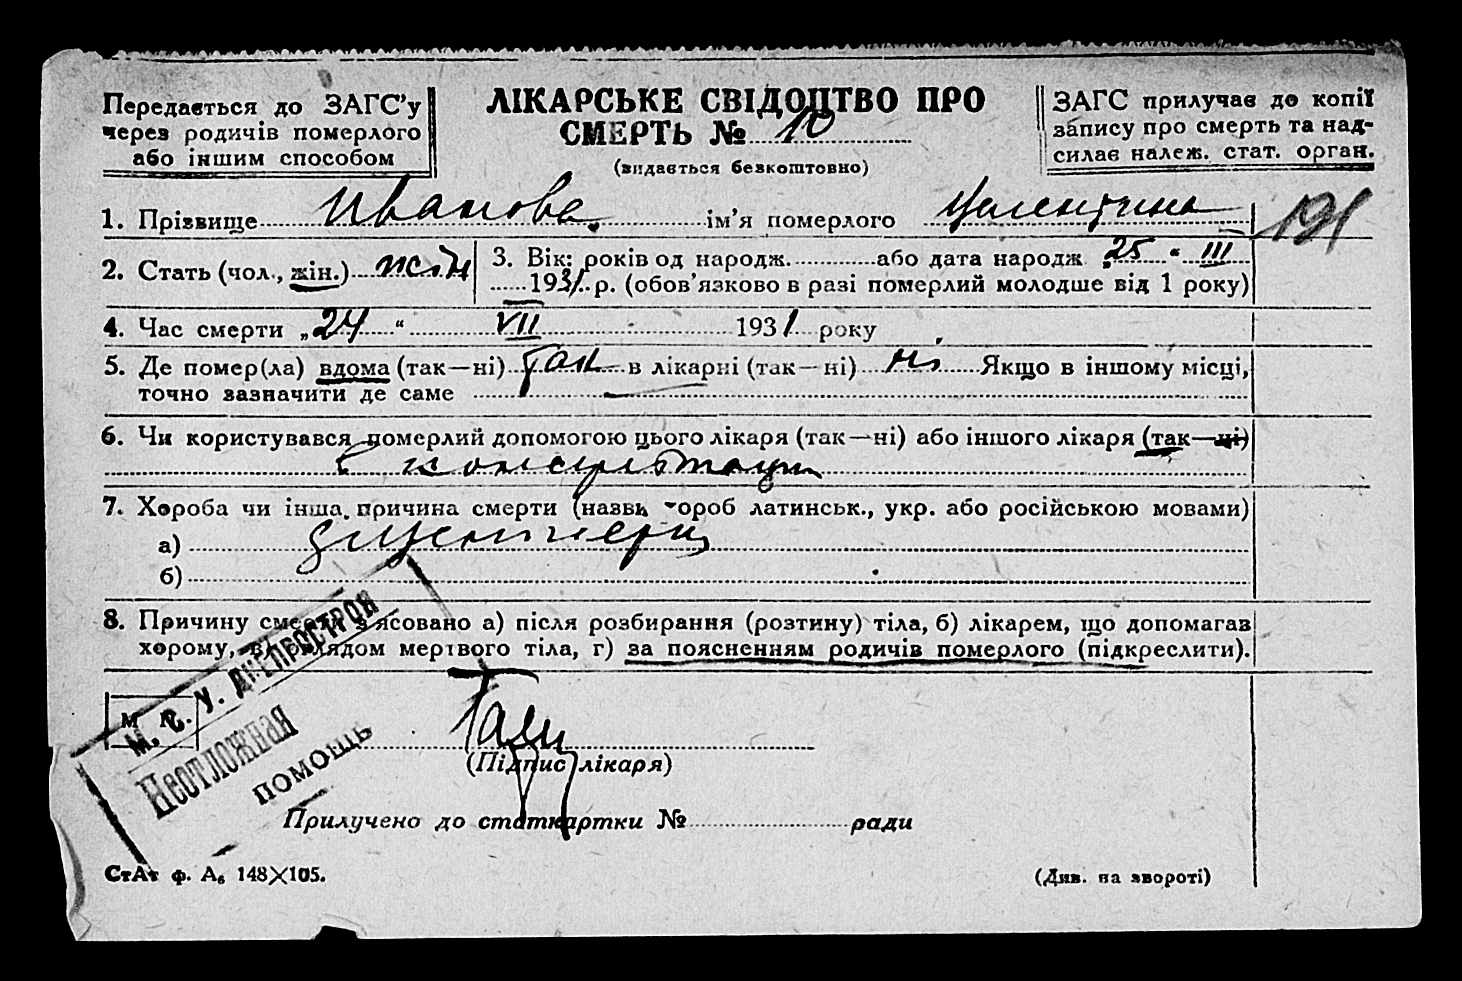 Передається до ЗАГС'у
через родичів померлого
або іншим способом
ЛІКАРСЬКЕ СВІДОЦТВО ПРО
СМЕРТЬ № 10
(видається безкоштовно)
ЗАГС прилучає до копії
запису про смерть та над-
силає належ. стат. орган.
1. Прізвище Иванова ім'я померлого
191
2. Стать (чол., жін.) жін
3. Вік: років од народж. або дата народж „25“ III
1931 р. (обов'язково в разі померлий молодше від 1 року)
4. Час смерти „24“ VII 1931 року
5. Де помер(ла) вдома (так—ні) так в лікарні (так—ні) ні Якщо в іншому місці,
точно зазначити де саме —
6. Чи користувався померлий допомогою цього лікаря (так—ні) або іншого лікаря (так—ні)
7. Хороба чи інша причина смерти (назви хороб латинськ., укр. або російською мовами)
а) дизентерія
б)
8. Причину смерти з'ясовано а) після розбирання (розтину) тіла, б) лікарем, що допомагав
хорому, в) оглядом мертвого тіла, г) за поясненням родичів померлого (підкреслити).
М. С. У. ДНЕПРОСТРОЯ
Неотложная
помощь
(Підпис лікаря)
Прилучено до статкартки № ради
СтАт ф. А₆ 148×105.
(Див. на звороті)